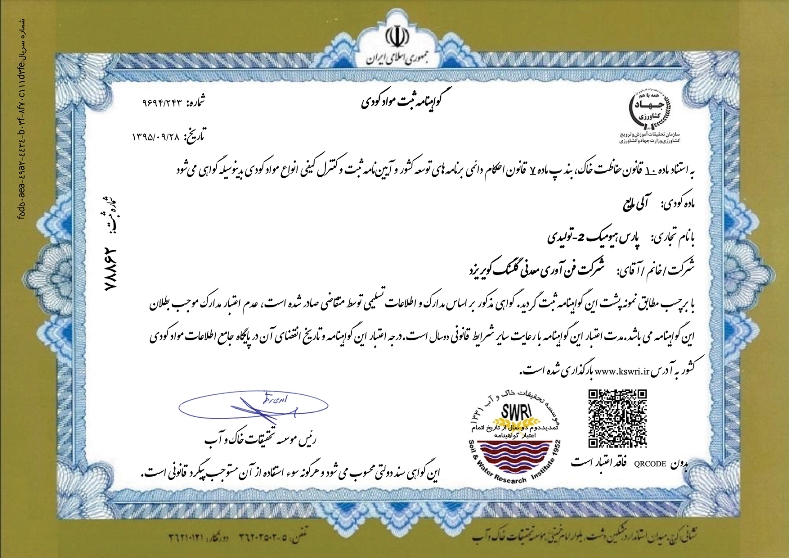 جمهوری اسلامی ایران
گواهینامه ثبت مواد کودی
شماره: ۹۶۹۴/۲۴۳
تاریخ: ۱۳۹۵/۰۹/۲۸
همه با هم
جهاد
کشاورزی
سازمان تحقیقات، آموزش و ترویج
کشاورزی وزارت جهاد کشاورزی
به استناد ماده ۱۰ قانون حفاظت خاک، بند پ ماده ۷ قانون احکام دائمی برنامه های توسعه کشور و آیین‌نامه ثبت و کنترل کیفی انواع مواد کودی بدینوسیله گواهی می‌شود
ماده کودی: آلی مایع
با نام تجاری: پارس هیومیک 2-تولیدی
شرکت / خانم / آقای: شرکت فن آوری معدنی گلسنگ کویر یزد
با برچسب مطابق نمونه پشت این گواهینامه ثبت گردید. گواهی مذکور بر اساس مدارک و اطلاعات تسلیمی توسط متقاضی صادر شده است، عدم اعتبار مدارک موجب بطلان
این گواهینامه می باشد. مدت اعتبار این گواهینامه با رعایت سایر شرایط قانونی دوسال است. درجه اعتبار این گواهینامه و تاریخ انقضای آن در پایگاه جامع اطلاعات مواد کودی
کشور به آدرس www.kswri.ir بارگذاری شده است.
شماره ثبت: ۷۸۸۶۲
رئیس موسسه تحقیقات خاک و آب
موسسه تحقیقات خاک و آب ۱۳۳۱
SWRI
تمدید دوم دو سال از تاریخ اتمام
اعتبار گواهینامه
Soil & Water Research Institute 1952
بدون QRCODE فاقد اعتبار است
این گواهی سند دولتی محسوب می شود و هرگونه سوء استفاده از آن مستوجب پیگرد قانونی است.
نشانی: کرج، میدان استاندارد، مشکین دشت، بلوار امام خمینی، موسسه تحقیقات خاک و آب
شماره سریال: